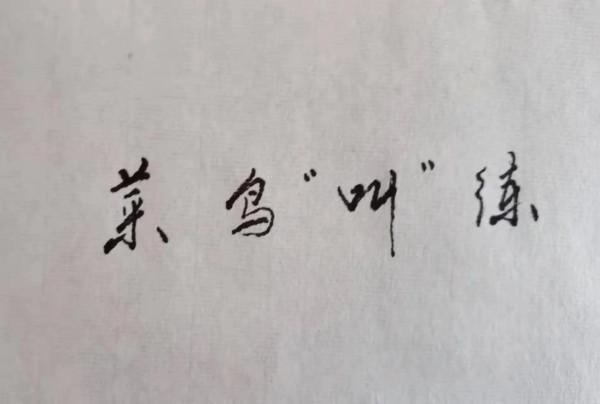 菜鸟“叫”练